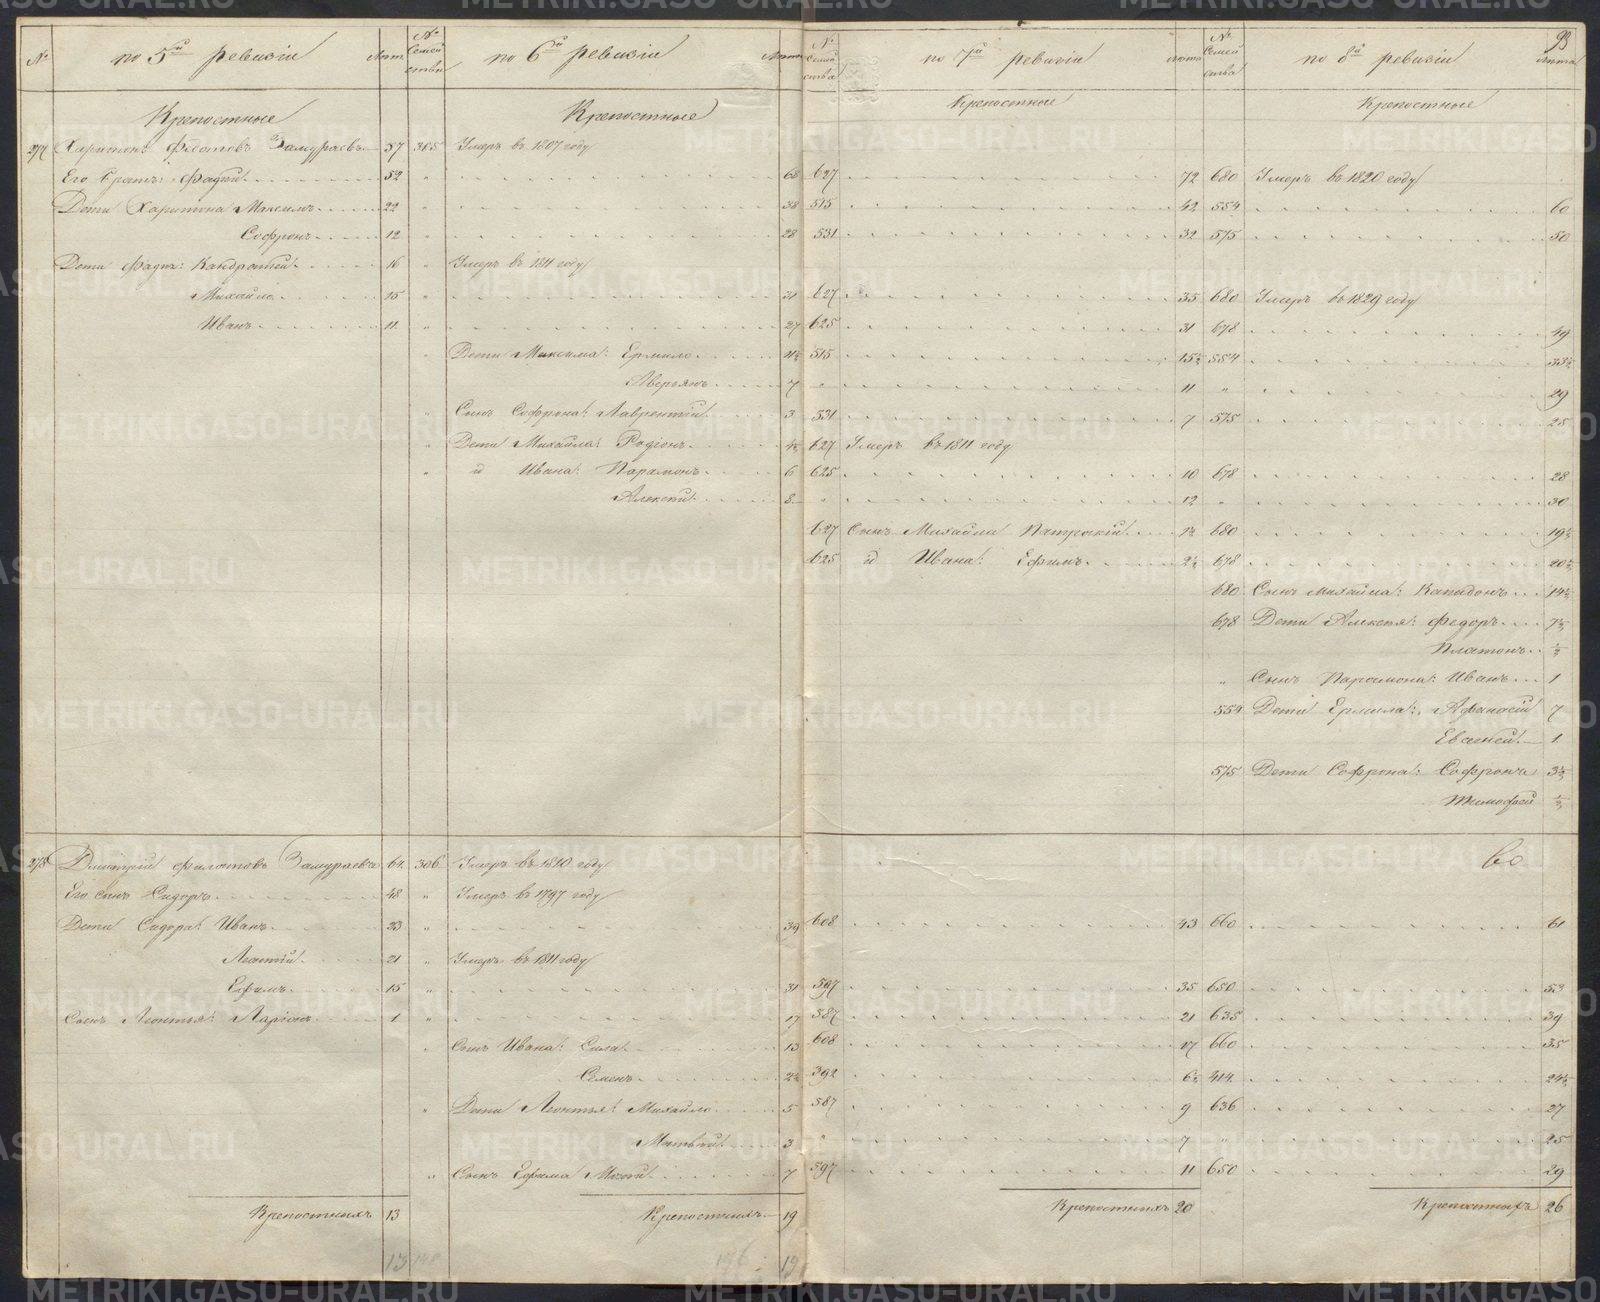 93
№ по 5й ревизiи Лѣта № Семейства по 6й ревизiи Лѣта № Семейства по 7й ревизiи лѣта № Семейства по 8й ревизiи лѣта
Крепостные Крепостные Крепостные Крепостные
277 Харитонъ Федотовъ Замураевъ 57 305 Умеръ въ 1807 году
Его братъ: Фадей 52 " 68 627 72 680 Умеръ въ 1820 году
Дети Харитона Максимъ 22 " 38 515 42 554 60
Софронъ 12 " 28 531 32 575 50
Дети Фадея: Кандратей 16 " Умеръ въ 1811 году
Михайло 15 " 31 627 35 680 Умеръ въ 1829 году
Иванъ 11 " 27 625 31 678 49
" Дети Максима: Ермило 11½ 515 15½ 554 33½
Аверьянъ 7 " 11 " 29
" Сынъ Софрона: Лаврентiй 3 531 7 575 25
" Дети Михайла: Родiонъ 4½ 627 Умеръ въ 1811 году
" и Ивана: Парамонъ 6 625 10 678 28
Алексей 8 " 12 " 30
627 Сынъ Михайла Патрокiй 1½ 680 19½
625 и Ивана: Ефимъ 2½ 678 20½
680 Сынъ Михайла: Капидонъ 14½
678 Дети Алексея: Федоръ 7½
Платонъ ½
" Сынъ Парамона: Иванъ 1
554 Дети Ермила: Афанасiй 7
Евсигней 1
575 Дети Софрона: Софронъ 3½
Тимофей ½
278 Дмитрiй Филатовъ Замураевъ 64 306 Умеръ въ 1810 году
Его сынъ Сидоръ 48 " Умеръ въ 1797 году
Дети Сидора: Иванъ 23 " 39 608 43 660 61
Леонтiй 21 " Умеръ въ 1811 году
Ефимъ 15 " 31 597 35 650 53
Сынъ Леонтья: Ларiонъ 1 " 17 587 21 635 39
" Сынъ Ивана: Сила 13 608 17 660 35
Семенъ 2½ 392 6½ 414 24½
" Дети Леонтья: Михайло 5 587 9 636 27
Матвей 3 " 7 " 25
" Сынъ Ефима Мосей 7 597 11 650 29
Крепостныхъ 13 Крепостныхъ 19 Крепостныхъ 20 Крепостныхъ 26
13 19
METRIKI.GASO-URAL.RU